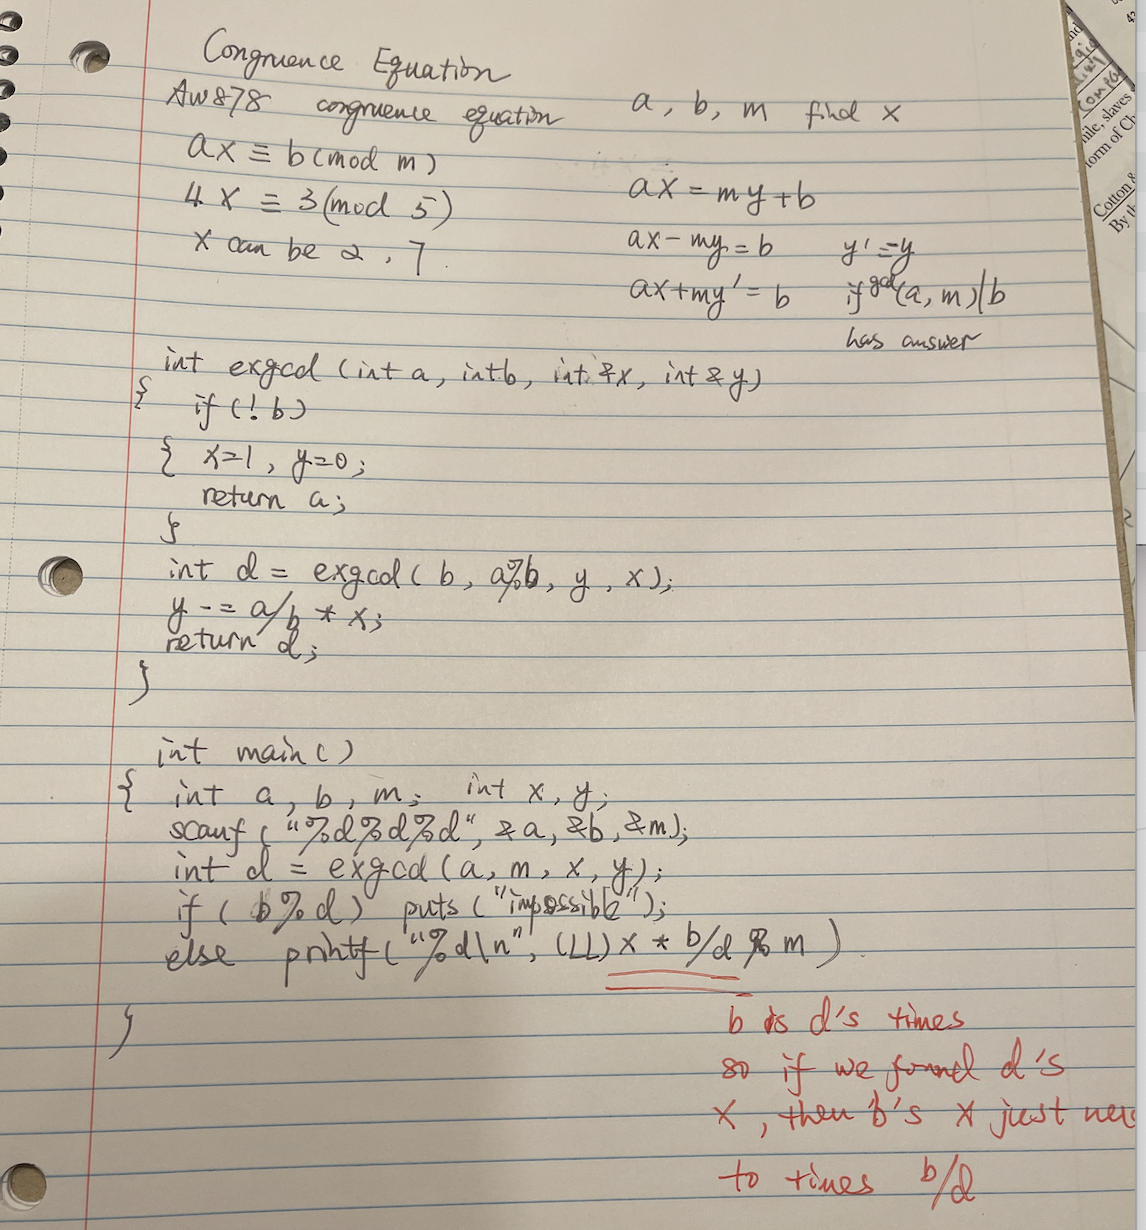 Congruence Equation
AW878 congruence equation
a, b, m find x
ax ≡ b (mod m)
4x ≡ 3 (mod 5)
x can be 2, 7
ax = my + b
ax - my = b y' = -y
ax + my' = b if gcd(a, m) | b
has answer
int exgcd (int a, int b, int &x, int &y)
{ if (! b)
{ x=1, y=0;
return a;
}
int d = exgcd( b, a%b, y, x);
y -= a/b * x;
return d;
}
int main()
{ int a, b, m; int x, y;
scanf ("%d%d%d", &a, &b, &m);
int d = exgcd (a, m, x, y);
if ( b % d) puts ("impossible");
else printf ("%d\n", (LL) x * b/d % m )
}
b is d's times
so if we found d's
x, then b's x just
to times b/d
Cotton &